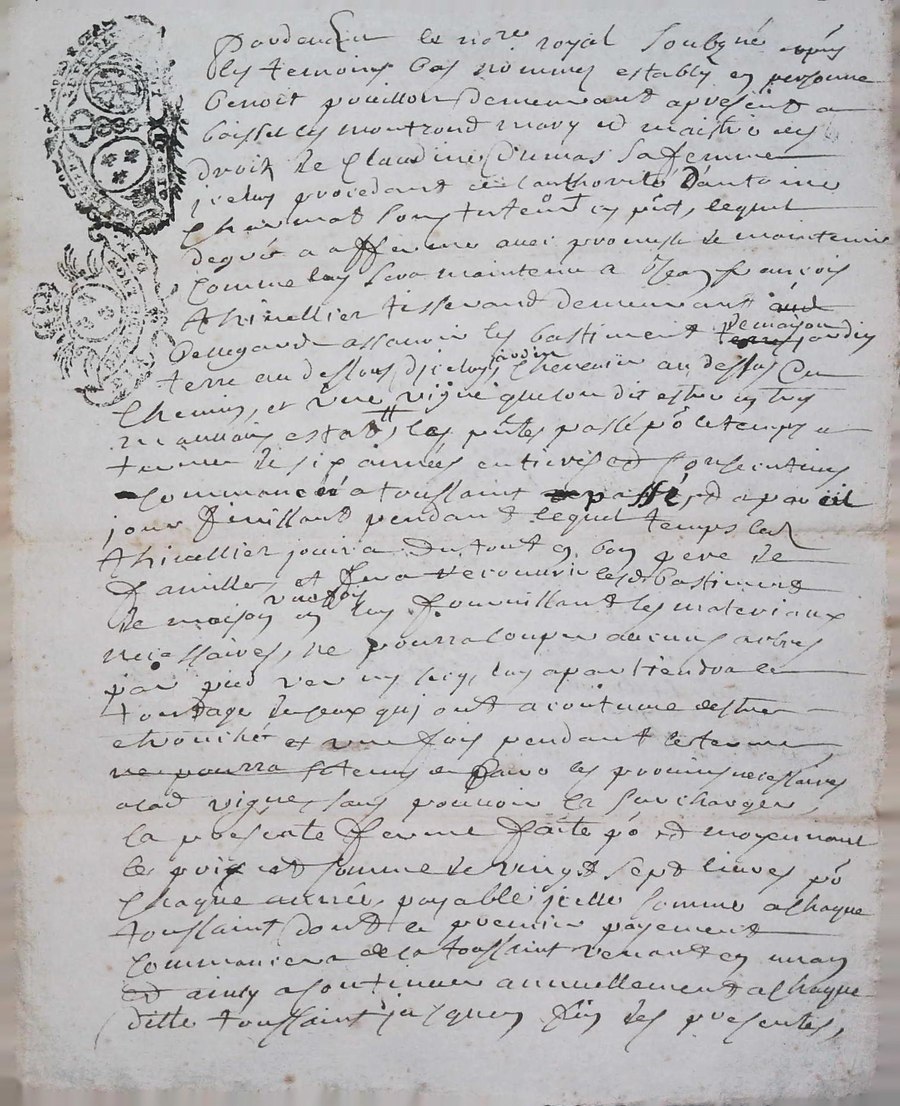 Pardevant le no.re royal Soubzné après
les temoins bas nommés estably en personne
benoit pouillon demeurant apresent a
boisset les montrond mary et maistre des
droits de Claudine Dumas Sa femme
icelluy procedant de lauthorité D'antoine
son tuteur cy pnt, lequel
degré a affermé avec promesse de maintenir
comme luy sera maintenu a Jean françois
thivellier tisserand demeurant aud
Bellegarde assavoir les bastiment de maison jardin
terre au dessous d'icelluy, jardin Chenevier au dessus du
Chemin, et une vigne que lon dit estre en tres
mauvais estat, les pntes passé po le temps et
terme de six années entieres et consecutives
commancée a toussaint passé, et a pareil
jour finissant pendant lequel temps led
thivellier jouira du tout en bon pere de
famille, et fera recouvrir lesd bastiment
de maison une fois en luy fournissant les materiaux
necessaires, ne pourra couper aucuns arbres
par pied ver ny sec, luy apartiendra le
tondage de ceux qui ont acoutume destre
ebranché et une fois pendant le terme
ne pourra sera tenu de faire les provins necessaires
alad vigne sans pouvoir la surcharger,
la presente ferme faite po et moyennant
le prix et somme de vingt sept livres po
chaque année, payable icelle somme a chaque
toussaint dont le premier payement
commancera de la toussaint venant en un an
et ainsy a continuer annuellement a chaque
ditte toussaint jusques fin des presentes,